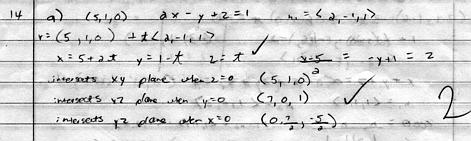 14 a) (5,1,0) 2x - y + z = 1 n = <2,-1,1>
r = (5,1,0) + t<2,-1,1>
x = 5+2t y = 1-t z = t ✓ x-5/2 = -y+1 = z
intersects xy plane when z=0 (5,1,0)
intersects xz plane when y=0 (7,0,1) ✓
intersects yz plane when x=0 (0,7/2,-5/2) 2